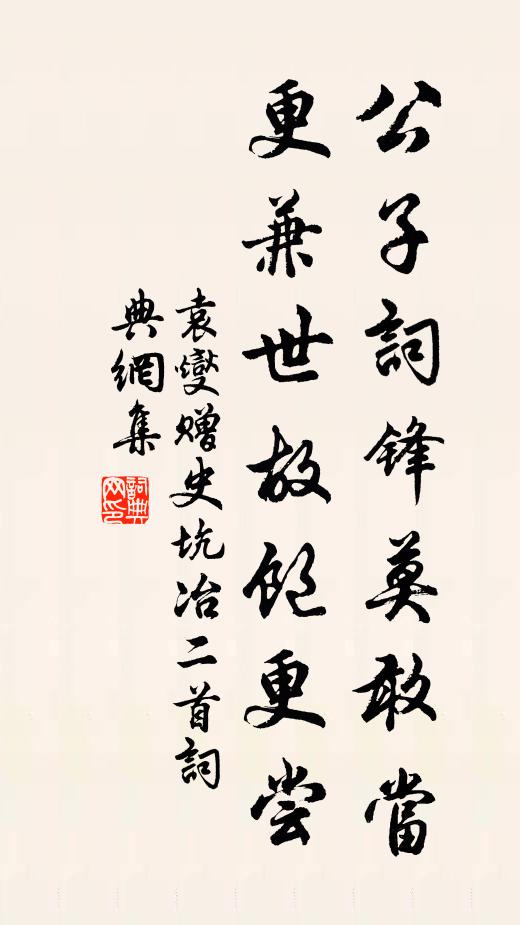 公子詞鋒莫敢當
更兼世故飽更尝
袁燮赠史坑冶二首詞
典網集
詞典网印